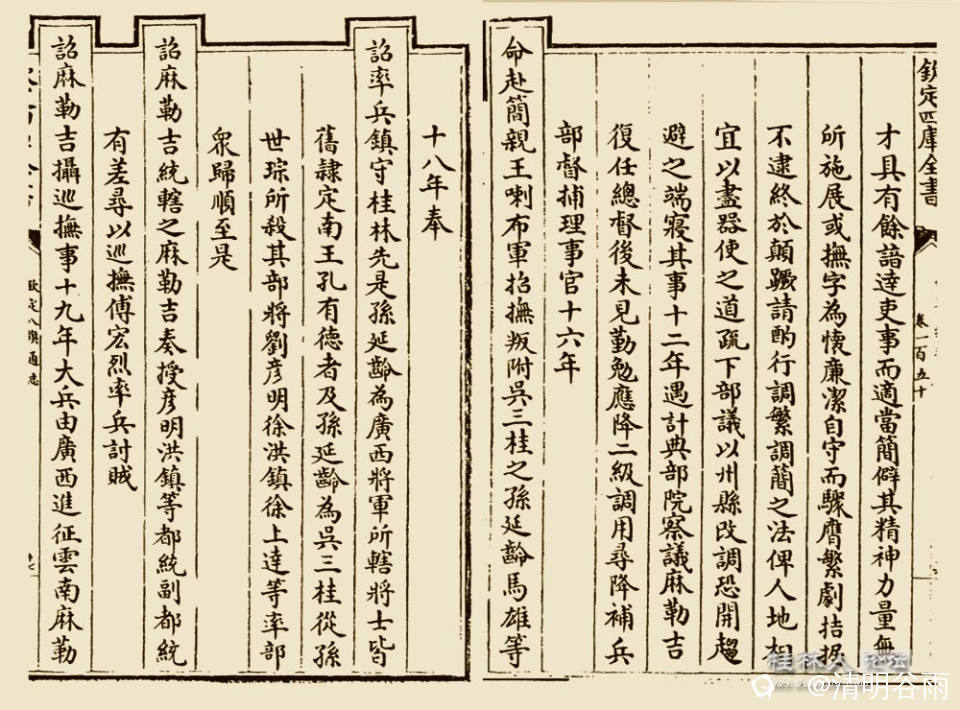 欽定四庫全書
卷一百五十
才具有餘諳逹吏事而適當簡僻其精神力量無
所施展或撫字為懷廉潔自守而驟膺繁劇拮据
不逮終於顛蹶請酌行調繁調簡之法俾人地相
宜以盡器使之道疏下部議以州縣改調恐開趨
避之端寢其事十二年遇計典部院察議麻勒吉
復任總督後未見勤勉應降二級調用尋降補兵
部督捕理事官十六年
命赴簡親王喇布軍招撫叛附吳三桂之孫延齡馬雄等
十八年奉
詔率兵鎮守桂林先是孫延齡為廣西將軍所轄將士皆
舊隸定南王孔有德者及孫延齡為吳三桂從孫
世琮所殺其部將劉彦明徐洪鎮徐上逹等率部
衆歸順至是
詔麻勒吉統轄之麻勒吉奏授彦明洪鎮等都統副都統
有差尋以巡撫傅宏烈率兵討賊
詔麻勒吉攝巡撫事十九年大兵由廣西進征雲南麻勒
欽定八旗通志
桂林人论坛
@清明谷雨